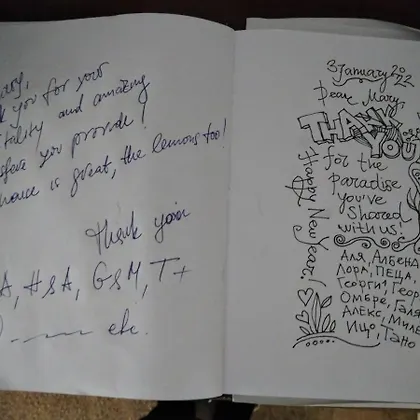 you for your
and amazing
you provide!
is great, the lemons too!
Thank you
A, HSA, GSM, T+
etc.
3 January 2022
Dear Mary,
THANK
YOU
for the
Paradise
you've
Shared
with us!
Happy New Year!
Аля, Албена
Лора, ПЕЦА,
Георги, Геор
Омбре, Галя
Алекс, Миле
Ицо, Тано